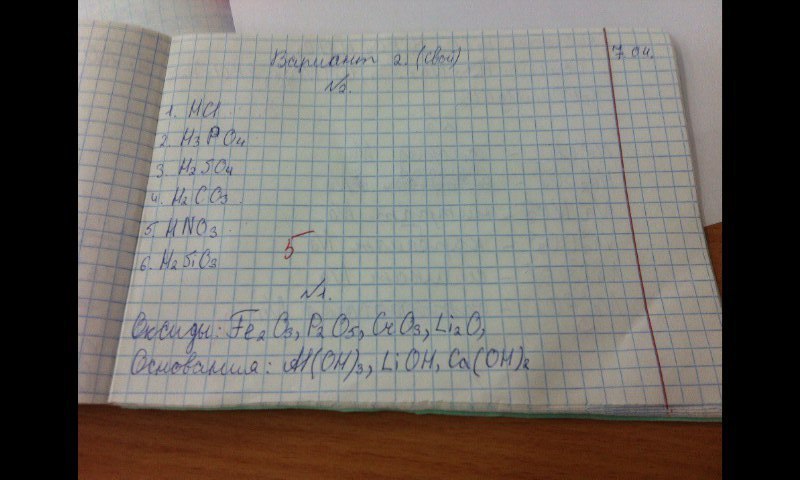 Вариант 2. (свой)
7.04.
№2.
1. HCl
2. H3PO4
3. H2SO4
4. H2CO3.
5. HNO3.
6. H2SiO3
5
№1.
Оксиды: Fe2O3, P2O5, CrO3, Li2O,
Основания: Al(OH)3, LiOH, Ca(OH)2